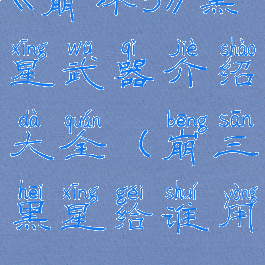 《崩坏3》黑
xīng wǔ qì jiè shào
星武器介绍
dà quán bēng sān
大全（崩三
hēi xīng gěi shuí yòng
黑星给谁用